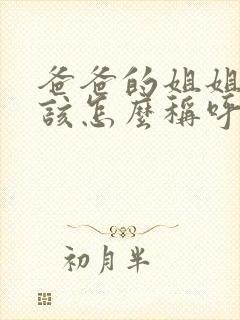 爸爸的姐姐
該怎麼稱呼
初月半